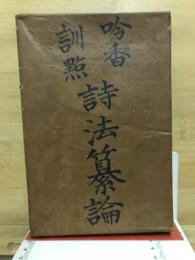 吟香
訓點
詩法纂論